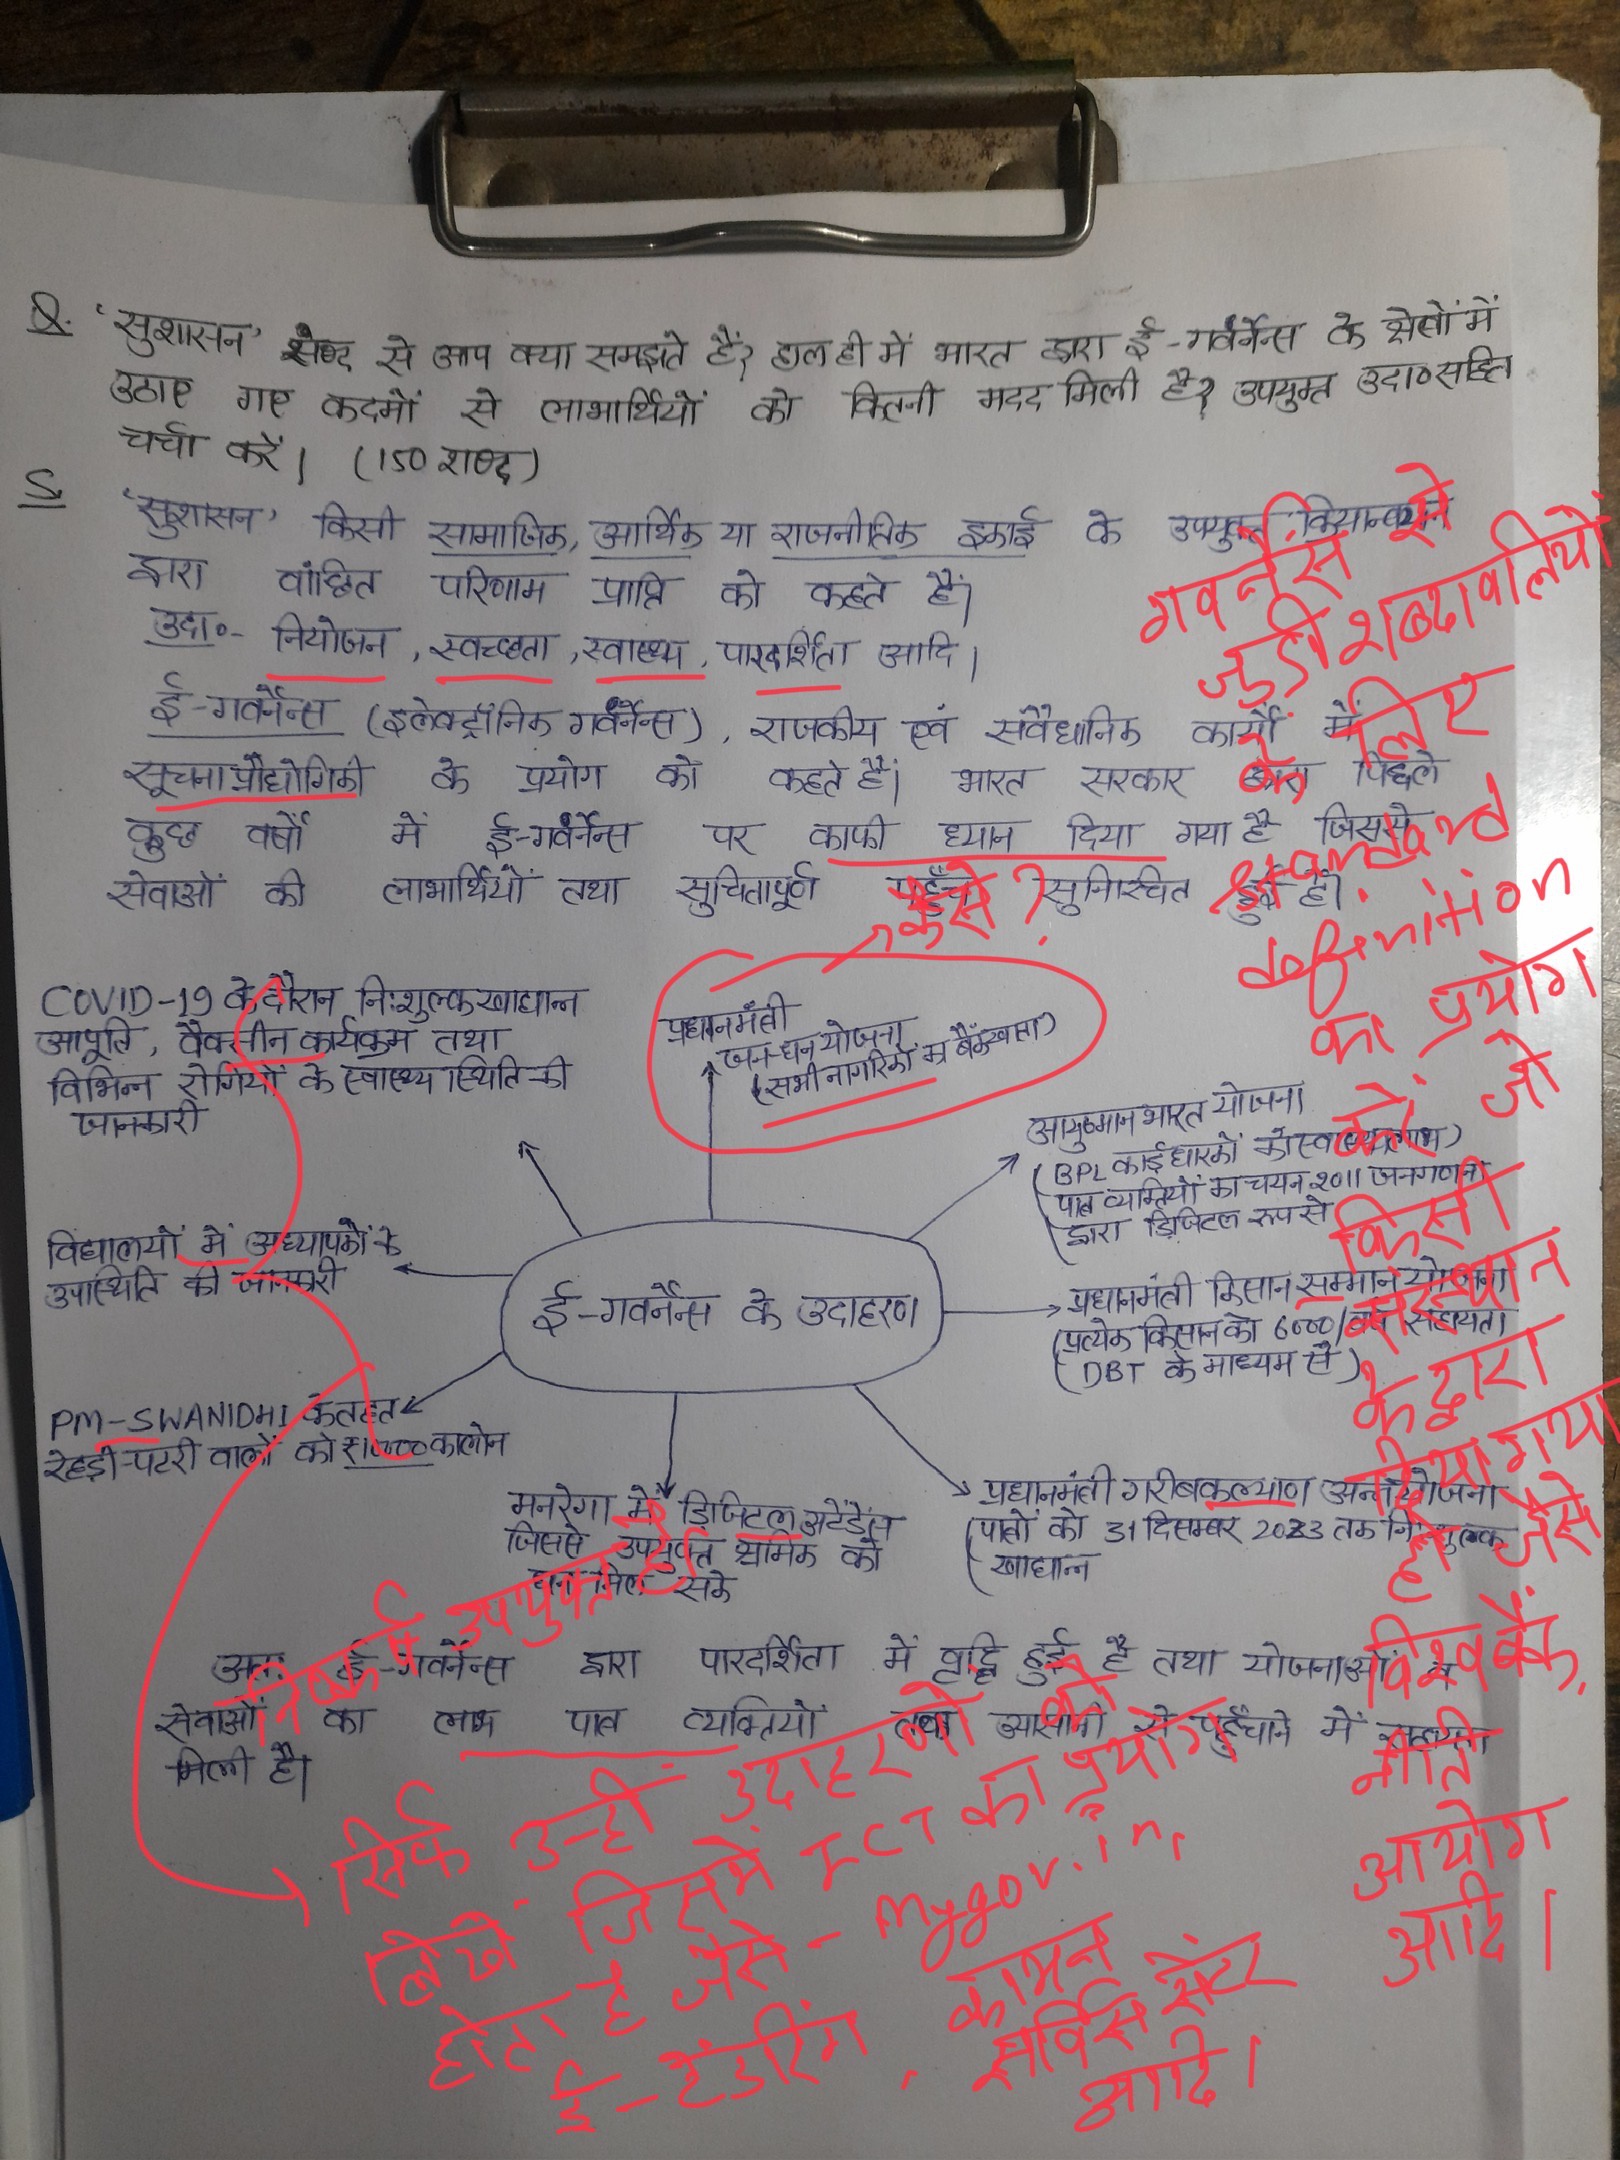 Q. 'सुशासन' शब्द से आप क्या समझते हैं? हाल ही में भारत द्वारा ई-गवर्नेन्स के क्षेत्रों में
उठाए गए कदमों से लाभार्थियों को कितनी मदद मिली है? उपयुक्त उदा० सहित
चर्चा करें। (150 शब्द)
S 'सुशासन' किसी सामाजिक, आर्थिक या राजनीतिक इकाई के उपयुक्त क्रियान्वयन
द्वारा वांछित परिणाम प्राप्ति को कहते हैं।
उदा०- नियोजन, स्वच्छता, स्वास्थ्य, पारदर्शिता आदि।
ई-गवर्नेन्स (इलेक्ट्रॉनिक गवर्नेन्स), राजकीय एवं संवैधानिक कार्यों में
सूचना प्रौद्योगिकी के प्रयोग को कहते हैं। भारत सरकार द्वारा पिछले
कुछ वर्षों में ई-गवर्नेन्स पर काफी ध्यान दिया गया है जिससे
सेवाओं की लाभार्थियों तथा सुचितापूर्ण पहुँच सुनिश्चित हुई है।
कैसे?
COVID-19 के दौरान निःशुल्क खाद्यान्न
आपूर्ति, वैक्सीन कार्यक्रम तथा
विभिन्न रोगियों के स्वास्थ्य स्थिति की
जानकारी
प्रधानमंत्री
जन-धन योजना
(सभी नागरिकों का बैंक खाता)
आयुष्मान भारत योजना
(BPL कार्डधारकों को स्वास्थ्य लाभ)
पात्र व्यक्तियों का चयन 2011 जनगणना
द्वारा डिजिटल रूप से
विद्यालयों में अध्यापकों के
उपस्थिति की जानकारी
ई-गवर्नेन्स के उदाहरण
प्रधानमंत्री किसान सम्मान योजना
(प्रत्येक किसान को 6000/वर्ष सहायता
DBT के माध्यम से)
PM-SWANIDHI के तहत
रेहड़ी-पटरी वालों को ₹10000 का लोन
मनरेगा में डिजिटल अटेंडेंस
जिससे उपयुक्त श्रमिक को
धन मिल सके
प्रधानमंत्री गरीब कल्याण अन्न योजना
(पात्रों को 31 दिसम्बर 2023 तक निःशुल्क
खाद्यान्न
अतः ई-गवर्नेन्स द्वारा पारदर्शिता में वृद्धि हुई है तथा योजनाओं व
सेवाओं का लाभ पात्र व्यक्तियों तक आसानी से पहुँचाने में सहायता
मिली है।
गवर्नेंस से
जुड़ी शब्दावलियों
के लिए
standard
definition
का प्रयोग
करें जो
किसी
संस्थान
के द्वारा
दिया गया
हो जैसे
विश्व बैंक,
नीति
आयोग
आदि।
निष्कर्ष उपयुक्त है
सिर्फ उन्हीं उदाहरणों को
लिखें जिसमें ICT का प्रयोग
होता है जैसे - mygov.in,
ई-टेंडरिंग, कामन
सर्विस सेंटर
आदि।